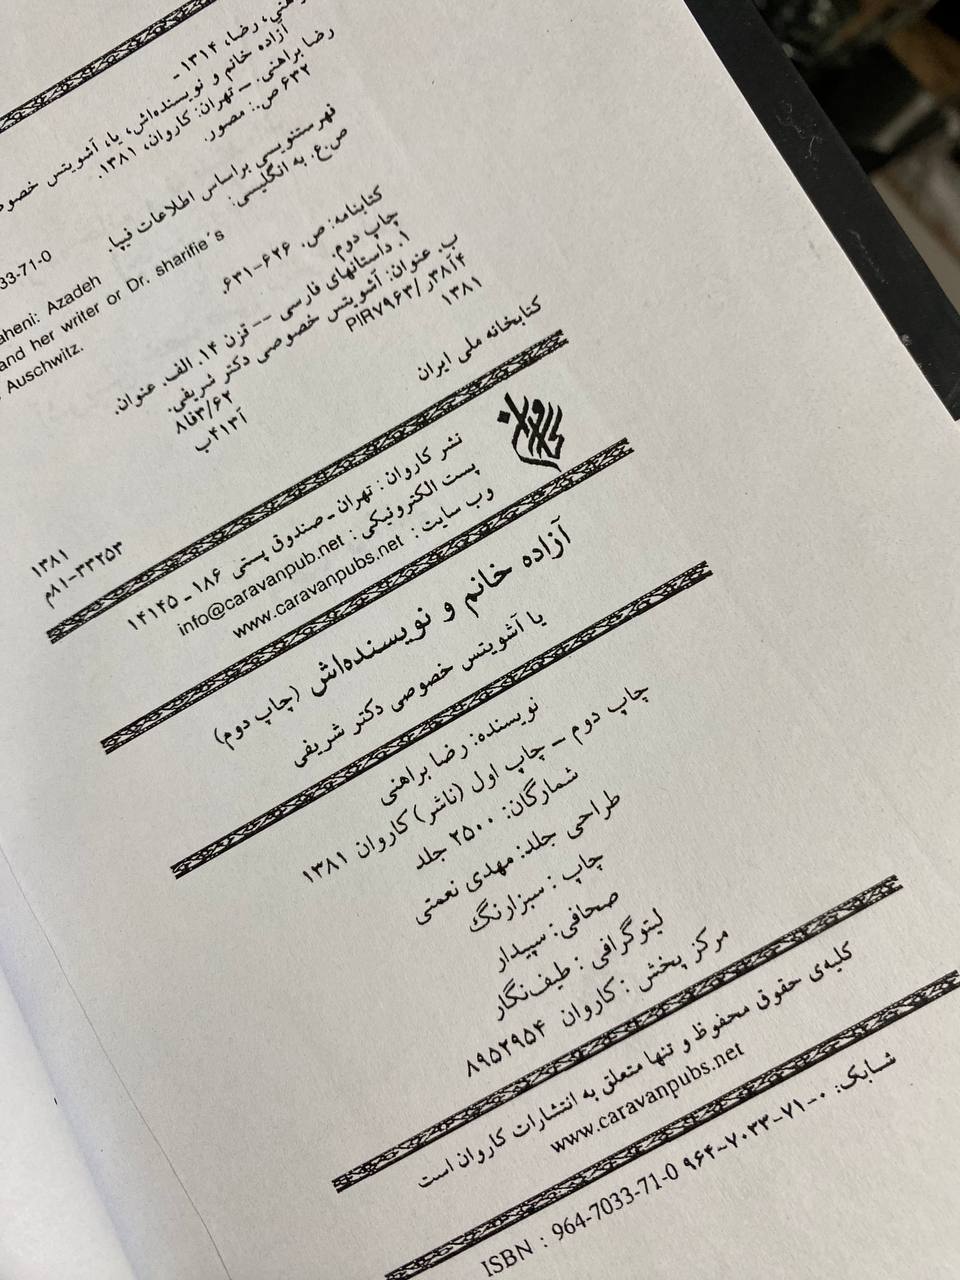 رضا، ۱۳۱۴-
آزاده خانم و نویسنده‌اش، یا، آشویتس
رضا براهنی. ــ تهران: کاروان، ۱۳۸۱.
۶۳۲ ص.: مصور.
33-71-0
فهرستنویسی براساس اطلاعات فیپا.
ص.ع. به انگلیسی:
aheni: Azadeh
and her writer or Dr. sharifie´s
Auschwitz.
کتابنامه: ص. ۶۲۶-۶۳۱.
چاپ دوم.
۱. داستانهای فارسی -- قرن ۱۴. الف. عنوان.
ب. عنوان: آشویتس خصوصی دکتر شریفی.
۸فا۳/۶۲ PIR۷۹۶۳/ر۳۸آ۴
آ۴۱۳ب ۱۳۸۱
۱۳۸۱ کتابخانه ملی ایران
۸۱-۳۳۲۵۳م
کاروان
نشر کاروان: تهران ـ صندوق پستی ۱۸۶ ـ ۱۴۱۴۵
پست الکترونیکی: info@caravanpub.net
وب سایت: www.caravanpubs.net
آزاده خانم و نویسنده‌اش (چاپ دوم)
یا آشویتس خصوصی دکتر شریفی
نویسنده: رضا براهنی
چاپ دوم ـ چاپ اول (ناشر) کاروان ۱۳۸۱
شمارگان: ۲۵۰۰ جلد
طراحی جلد: مهدی نعمتی
چاپ: سبزارنگ
صحافی: سپیدار
لیتوگرافی: طیف‌نگار
مرکز پخش: کاروان ۸۹۵۲۹۵۴
کلیه‌ی حقوق محفوظ و تنها متعلق به انتشارات کاروان است
www.caravanpubs.net
شابک: ۰-۷۱-۷۰۳۳-۹۶۴ ISBN : 964-7033-71-0